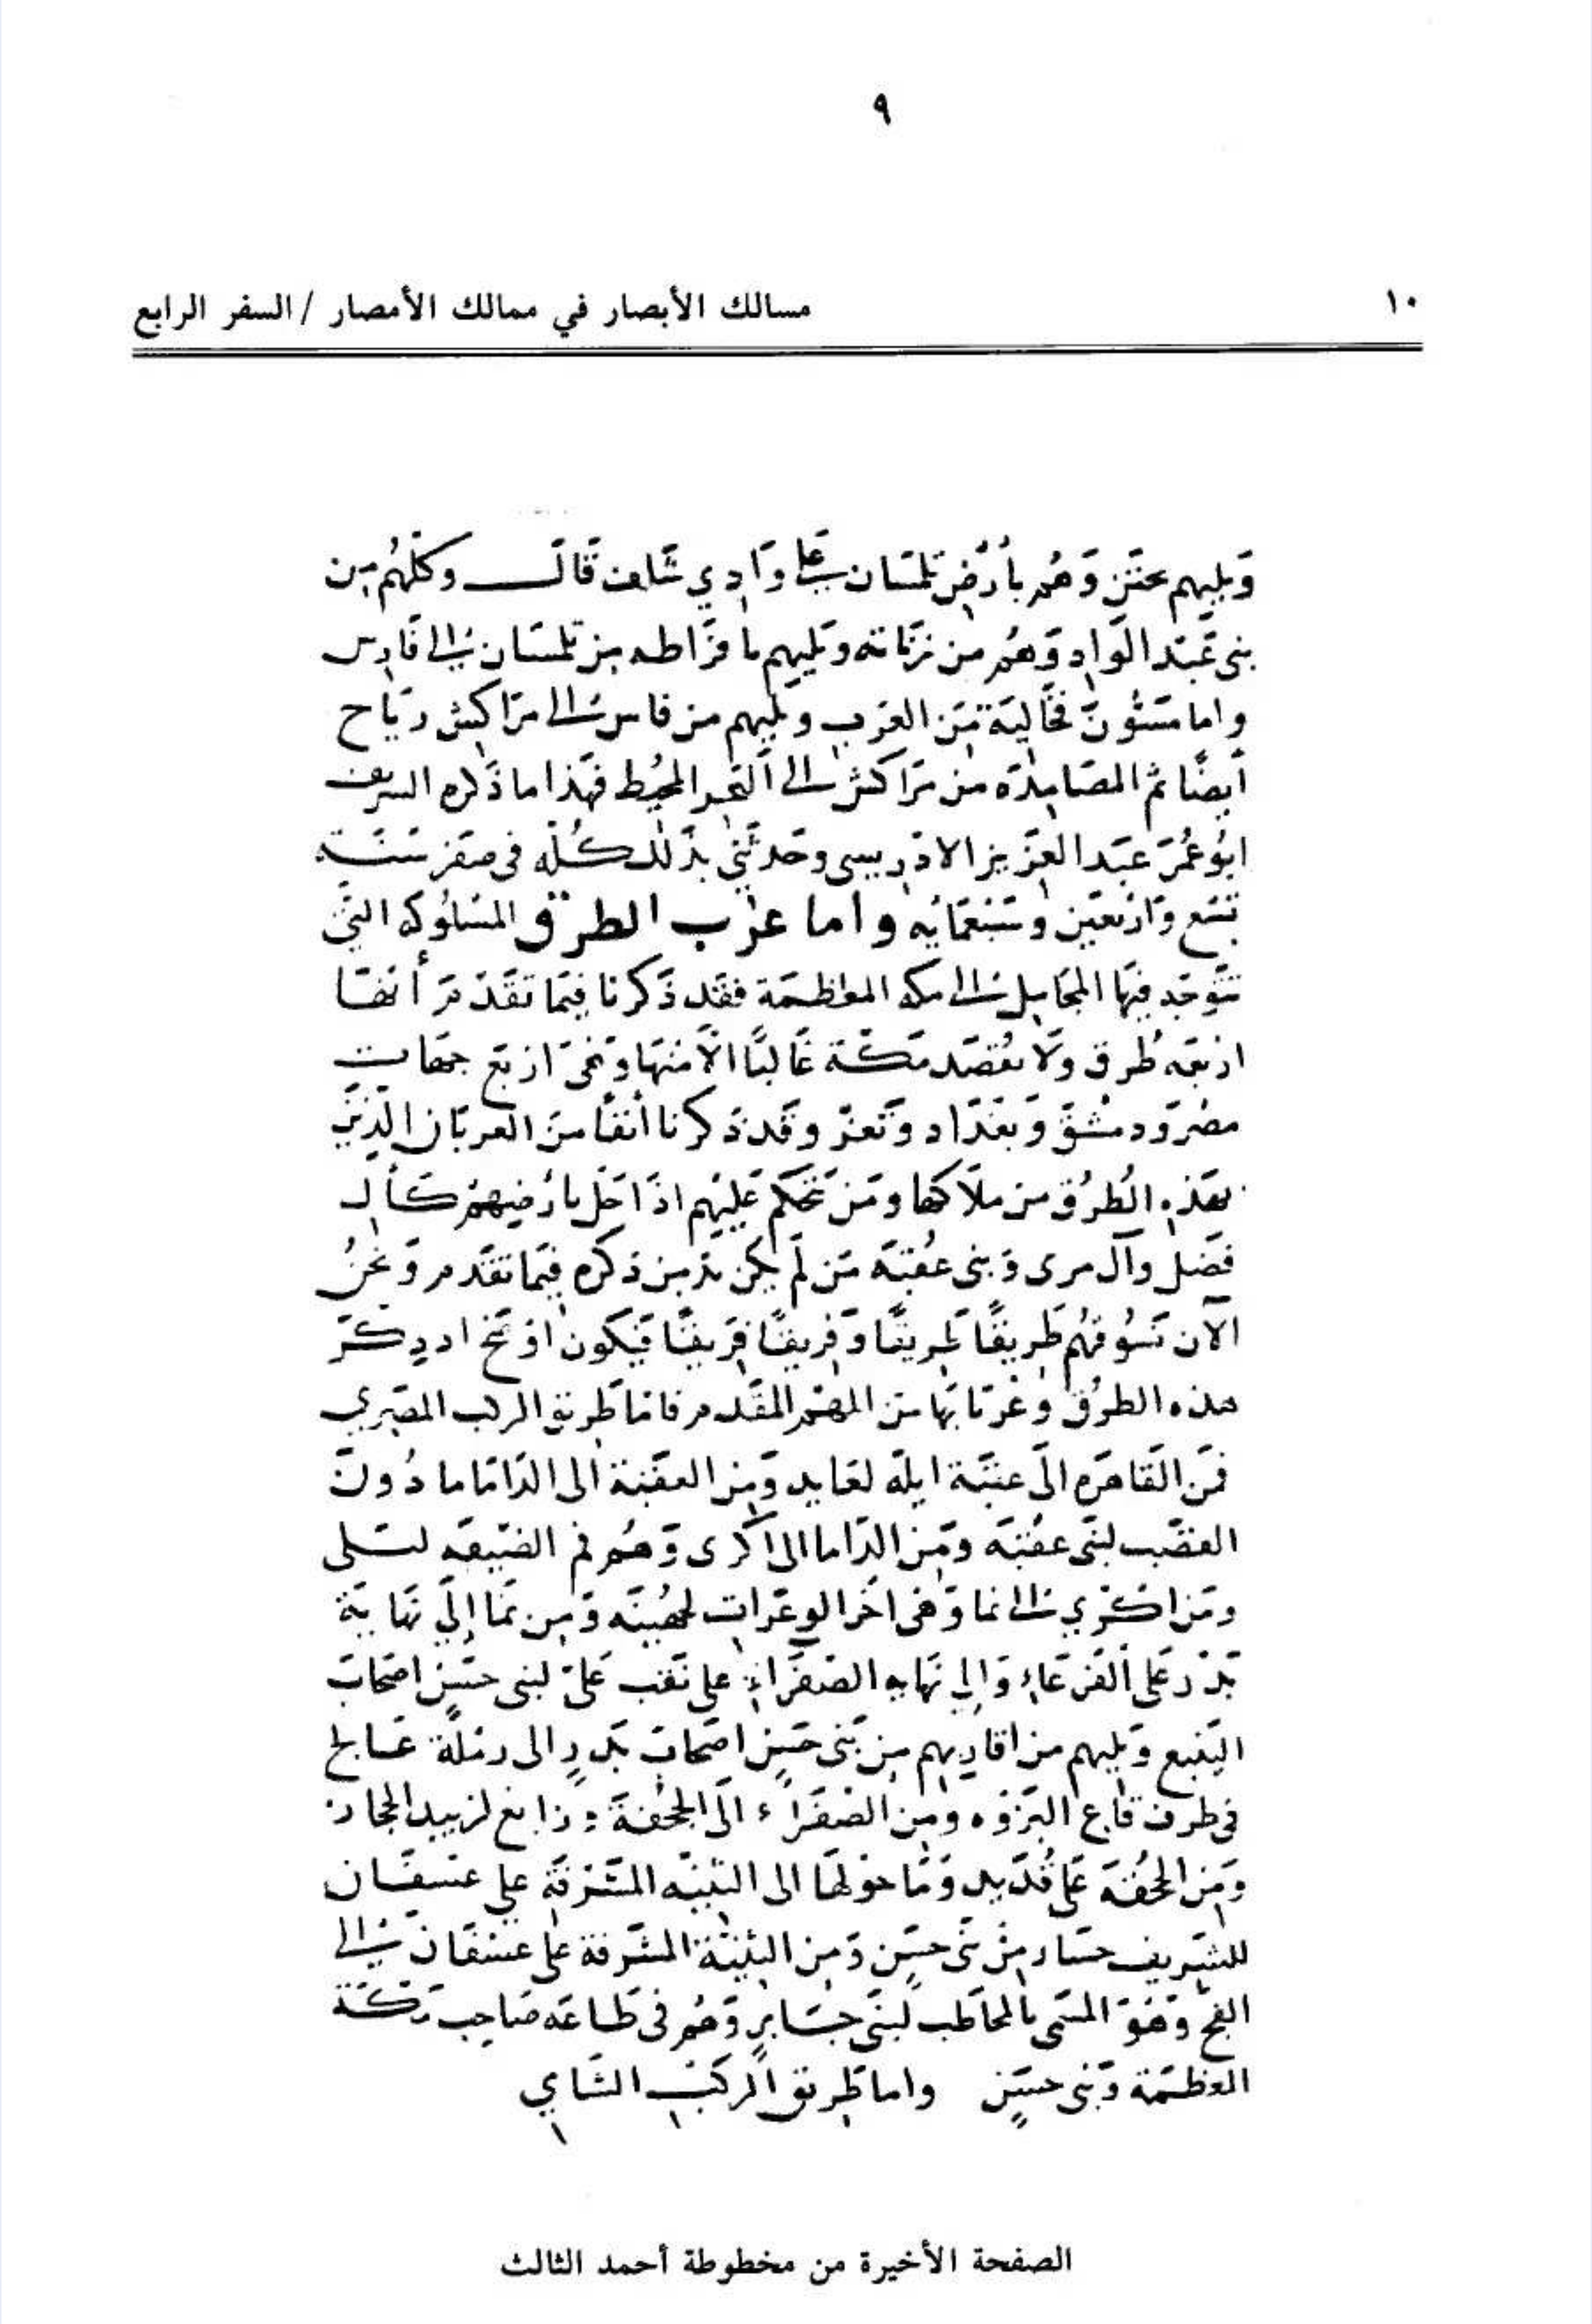 ٩
١٠
مسالك الأبصار في ممالك الأمصار / السفر الرابع
ويليهم وهم بأرض تلمسان على وادي شلف قال وكلهم من
بنى عبد الواد وهم من زناته ويليهم ما فزاطه من تلمسان الى فادس
واما مسون فخالية من العرب ويليهم من فاس الى مراكش رياح
أيضًا ثم المصامدة من مراكش الى البحر المحيط فهذا ما ذكره الشريف
ابو عمر عبد العزيز الادريسى وحدثني بذلك كله فى صفر سنة
تسع واربعين وسبعمائه واما عرب الطرق المسلوكه التي
تتوجد فيها المحامل الى مكه المعظمة فقد ذكرنا فيما تقدم أنها
اربعه طرق ولا يقصد مكة غالبًا الا منها وهى اربع جهات
مصر ودمشق وبغداد وتعز وقد ذكرنا أنفًا من العربان الذين
بهذه الطرق من ملاكها ومن تحكم عليهم اذا حل بارضيهم كأل
فضل وآل مرى وبنى عقبة من لم يكن بد من ذكره فيما تقدم ونحن
الآن نسوقهم طريقًا طريقًا وفريقًا فريقًا فيكون اذ ذكر
هذه الطرق وعربانها من المهم المقدم فاما طريق الركب المصري
فمن القاهره الى عقبة ايلة لعايد ومن العقبة الى الداما ما دون
العضب لبنى عقبه ومن الداما الى اكرى وهو فم الضيقه لبلى
ومن اكرى الى نما وهى آخر الوعرات لجهينه ومن نما إلى نهاية
بدر على الفرعاء وإلى نهايه الصفراء على نقب على لبنى حسن اصحاب
الينبع ويليهم من اقاربهم من بنى حسن اصحاب بدر الى رملة عالج
فى طرف قاع البزوه ومن الصفراء الى الجحفة ورابغ لزبيد الحجاز
ومن الجحفه على قديد وما حولها الى الثنيه المشرفة على عسفان
للشريف حسار من بنى حسن ومن الثنية المشرفة على عسفان الى
الفج وهو المسمى بالمحاطب لبنى جابر وهم فى طاعه صاحب مكة
المعظمة وبنى حسن واما طريق الركب الشامي
الصفحة الأخيرة من مخطوطة أحمد الثالث